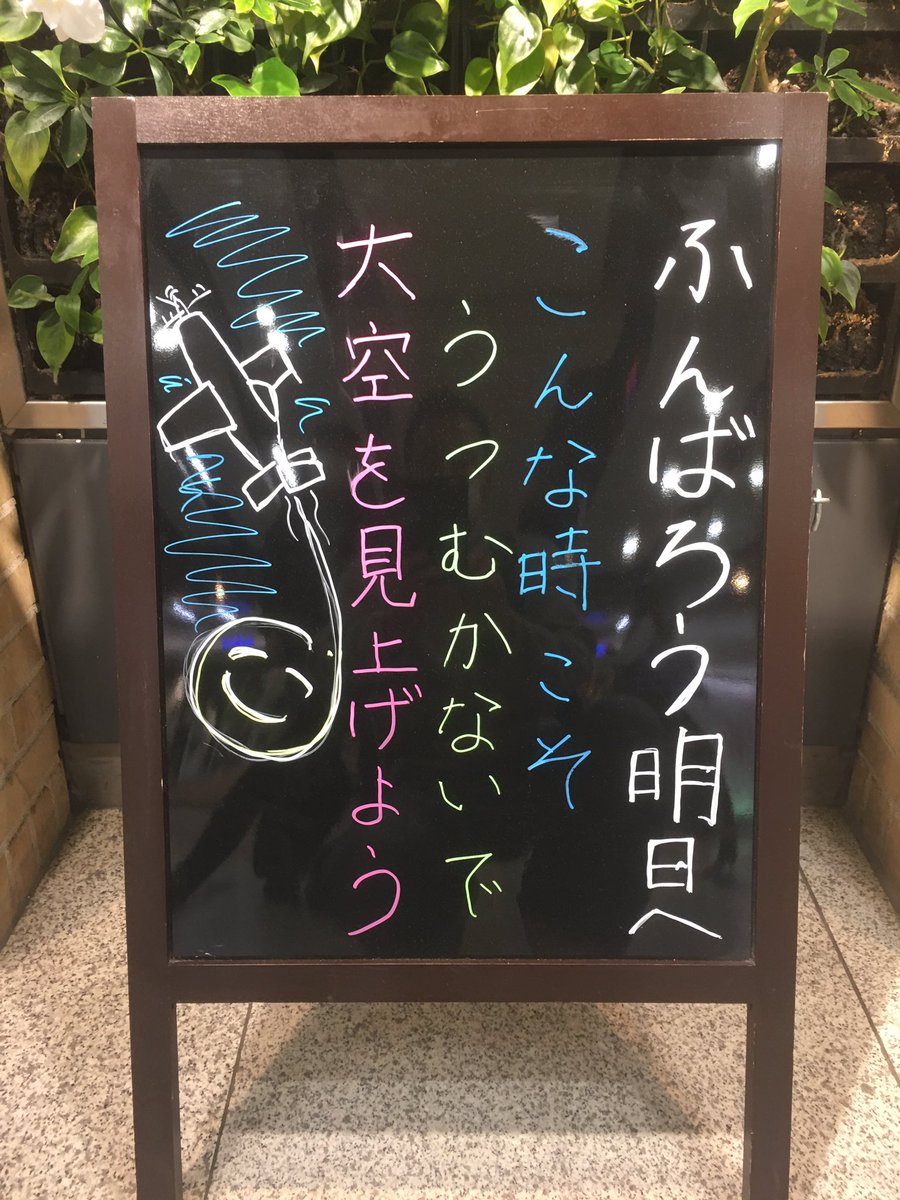 ふんばろう明日へ
こんな時こそ
うつむかないで
大空を見上げよう